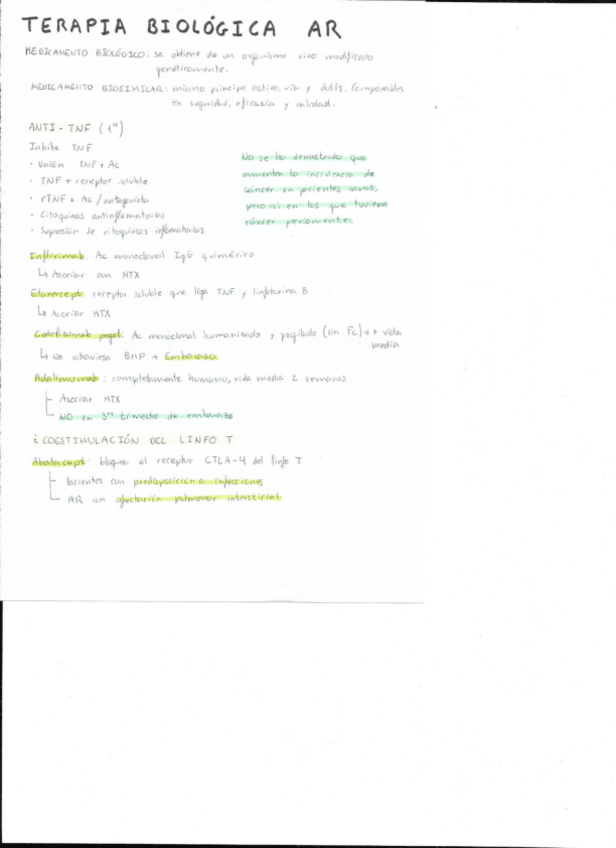 TERAPIA BIOLÓGICA AR
MEDICAMENTO BIOLÓGICO: se obtiene de un organismo vivo modificado
genéticamente.
MEDICAMENTO BIOSIMILAR: mismo principio activo, vía y dosis. Comparables
en seguridad, eficacia y calidad.
ANTI-TNF (1º)
Inhibe TNF
· Unión TNF + Ac
· TNF + receptor soluble
· rTNF + Ac / antagonista
· Citoquinas antiinflamatorias
· Supresión de citoquinas inflamatorias
No se ha demostrado que
aumenten la incidencia de
cáncer en pacientes sanos,
pero sí en los que tuvieron
cáncer previamente
Infliximab: Ac monoclonal IgG quimérico
↳ Asociar con MTX
Etanercept: receptor soluble que liga TNF y linfotoxina B
↳ Asociar MTX
Certolizumab pegol: Ac monoclonal humanizado y pegilado (sin Fc) → + vida
media
↳ No atraviesa BHP → Embarazo
Adalimumab: completamente humano, vida media 2 semanas
Asociar MTX
NO en 3er trimestre de embarazo
i COESTIMULACIÓN DEL LINFO T
Abatacept: bloquea el receptor CTLA-4 del linfo T
Pacientes con predisposición a infecciones
AR con afectación pulmonar intersticial